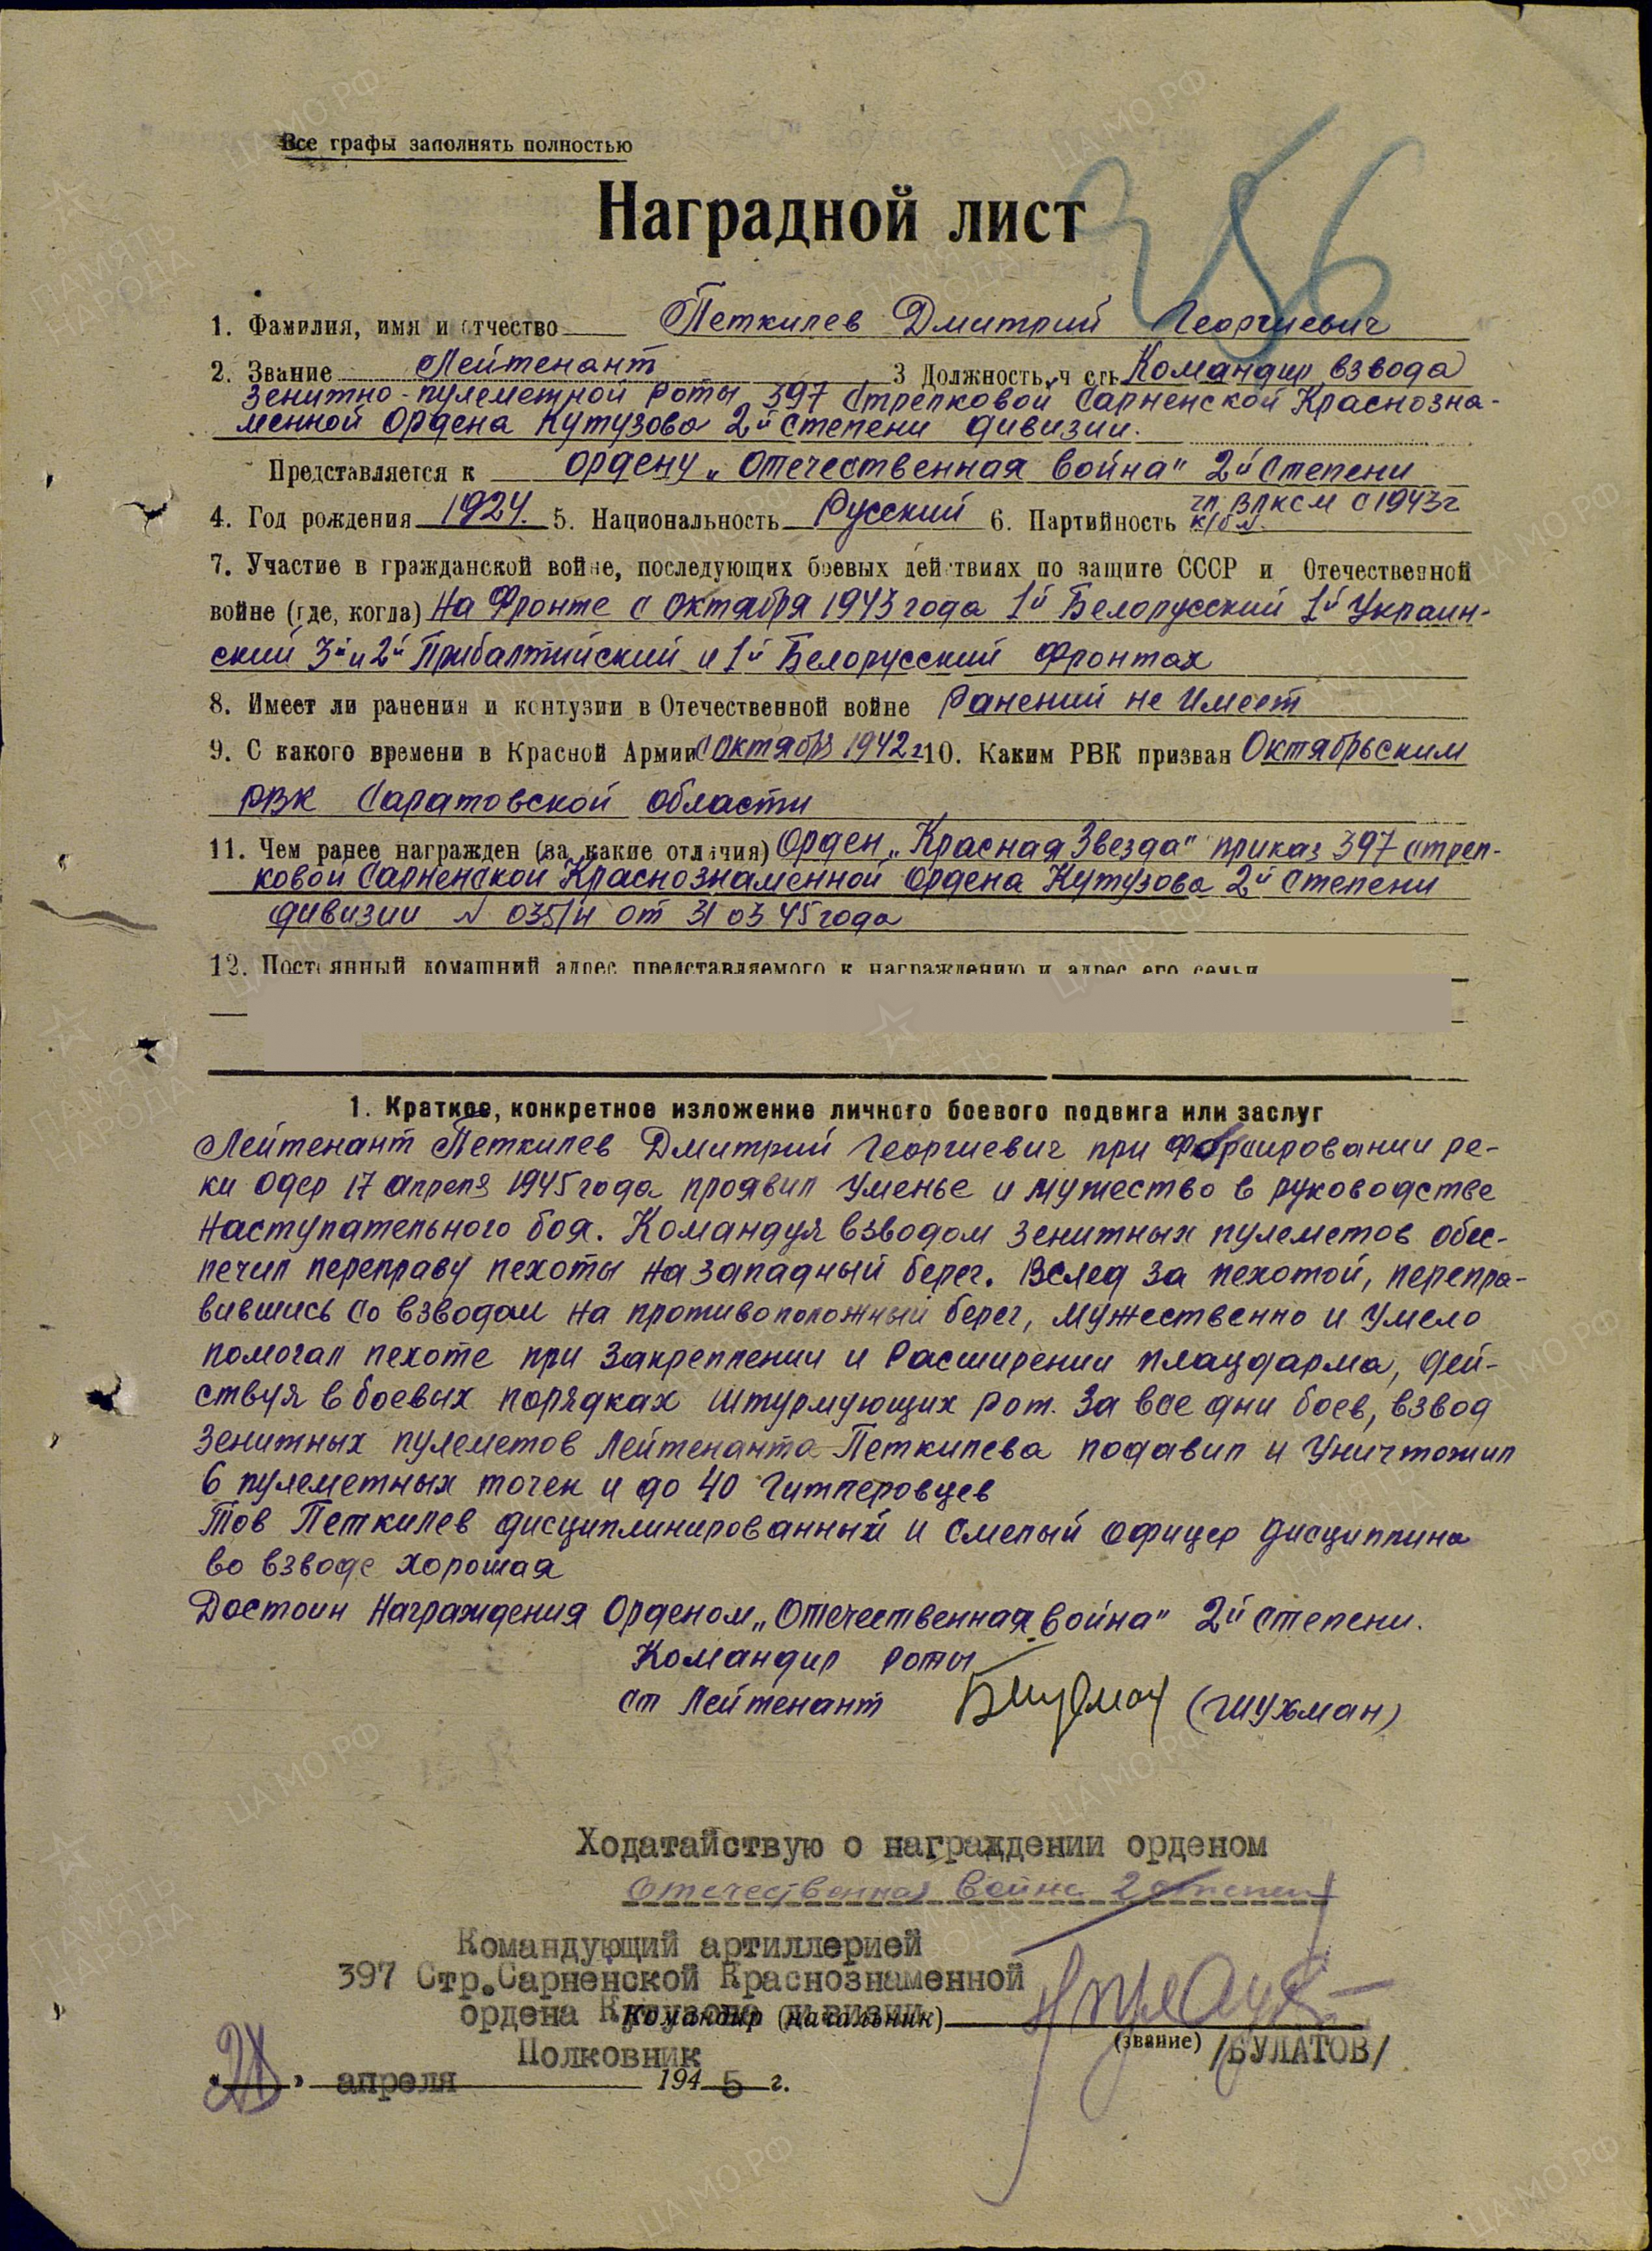 Все графы заполнять полностью
356
Наградной лист
1. Фамилия, имя и отчество Петкилев Дмитрий Георгиевич
2. Звание Лейтенант 3 Должность, часть Командир взвода
Зенитно-пулеметной роты 397 Стрелковой Сарненской Краснозна-
менной Ордена Кутузова 2й Степени дивизии.
Представляется к ордену „Отечественная война" 2й Степени
4. Год рождения 1924. 5. Национальность Русский 6. Партийность чл. ВЛКСМ с 1943г
7. Участие в гражданской войне, последующих боевых действиях по защите СССР и Отечественной
войне (где, когда) На Фронте с октября 1943 года 1й Белорусский 1й Украин-
ский 3й и 2й Прибалтийский и 1й Белорусский Фронтах
8. Имеет ли ранения и контузии в Отечественной войне Ранений не Имеет
9. С какого времени в Красной Армии с октября 1942г 10. Каким РВК призван Октябрьским
РВК Саратовской области
11. Чем ранее награжден (за какие отличия) Орден „Красная Звезда" приказ 397 стрел-
ковой Сарненской Краснознаменной ордена Кутузова 2й Степени
дивизии № 035/н от 31 03 45 года
12. Постоянный домашний адрес представляемого к награждению и адрес его семьи
1. Краткое, конкретное изложение личного боевого подвига или заслуг
Лейтенант Петкилев Дмитрий Георгиевич при Форсировании ре-
ки Одер 17 апреля 1945 года проявил Уменье и мужество в руководстве
Наступательного боя. Командуя взводом Зенитных пулеметов обес-
печил переправу пехоты на западный берег. Вслед за пехотой, перепра-
вившись со взводом на противоположный берег, мужественно и Умело
помогал пехоте при Закреплении и Расширении плацдарма, дей-
ствуя в боевых порядках штурмующих рот. За все дни боев, взвод
Зенитных пулеметов Лейтенанта Петкилева подавил и Уничтожил
6 пулеметных точек и до 40 Гитлеровцев
Тов Петкилев дисциплинированный и Смелый офицер дисциплина
во взводе хорошая
Достоин Награждения Орденом „Отечественная война" 2й Степени.
Командир роты
ст Лейтенант (Шухман)
Ходатайствую о награждении орденом
Отечественная Война 2 степени
Командующий артиллерией
397 Стр.Сарненской Краснознаменной
ордена Кутузова дивизии
Командир (начальник)
Полковник
(звание) /БУЛАТОВ/
апреля 1945 г.
ЦА МО РФ
ПАМЯТЬ НАРОДА